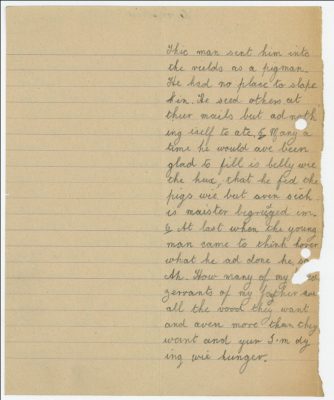 This man sent him into
the veelds as a pigman.
He had no place to slape
him. He seed others at
their mails but ad noth
ing iself to ate, & Many a
time he would ave been
glad to fill is belly wie
the hux, that he fed the
pigs wie but aven sich
is maister begruged im.
& At last when the young
man came to think
what he ad done he
Ah. How many of my
zervants of my father
all the vood they want
and aven more than they
want and yur I'm dy
ing wie hunger.